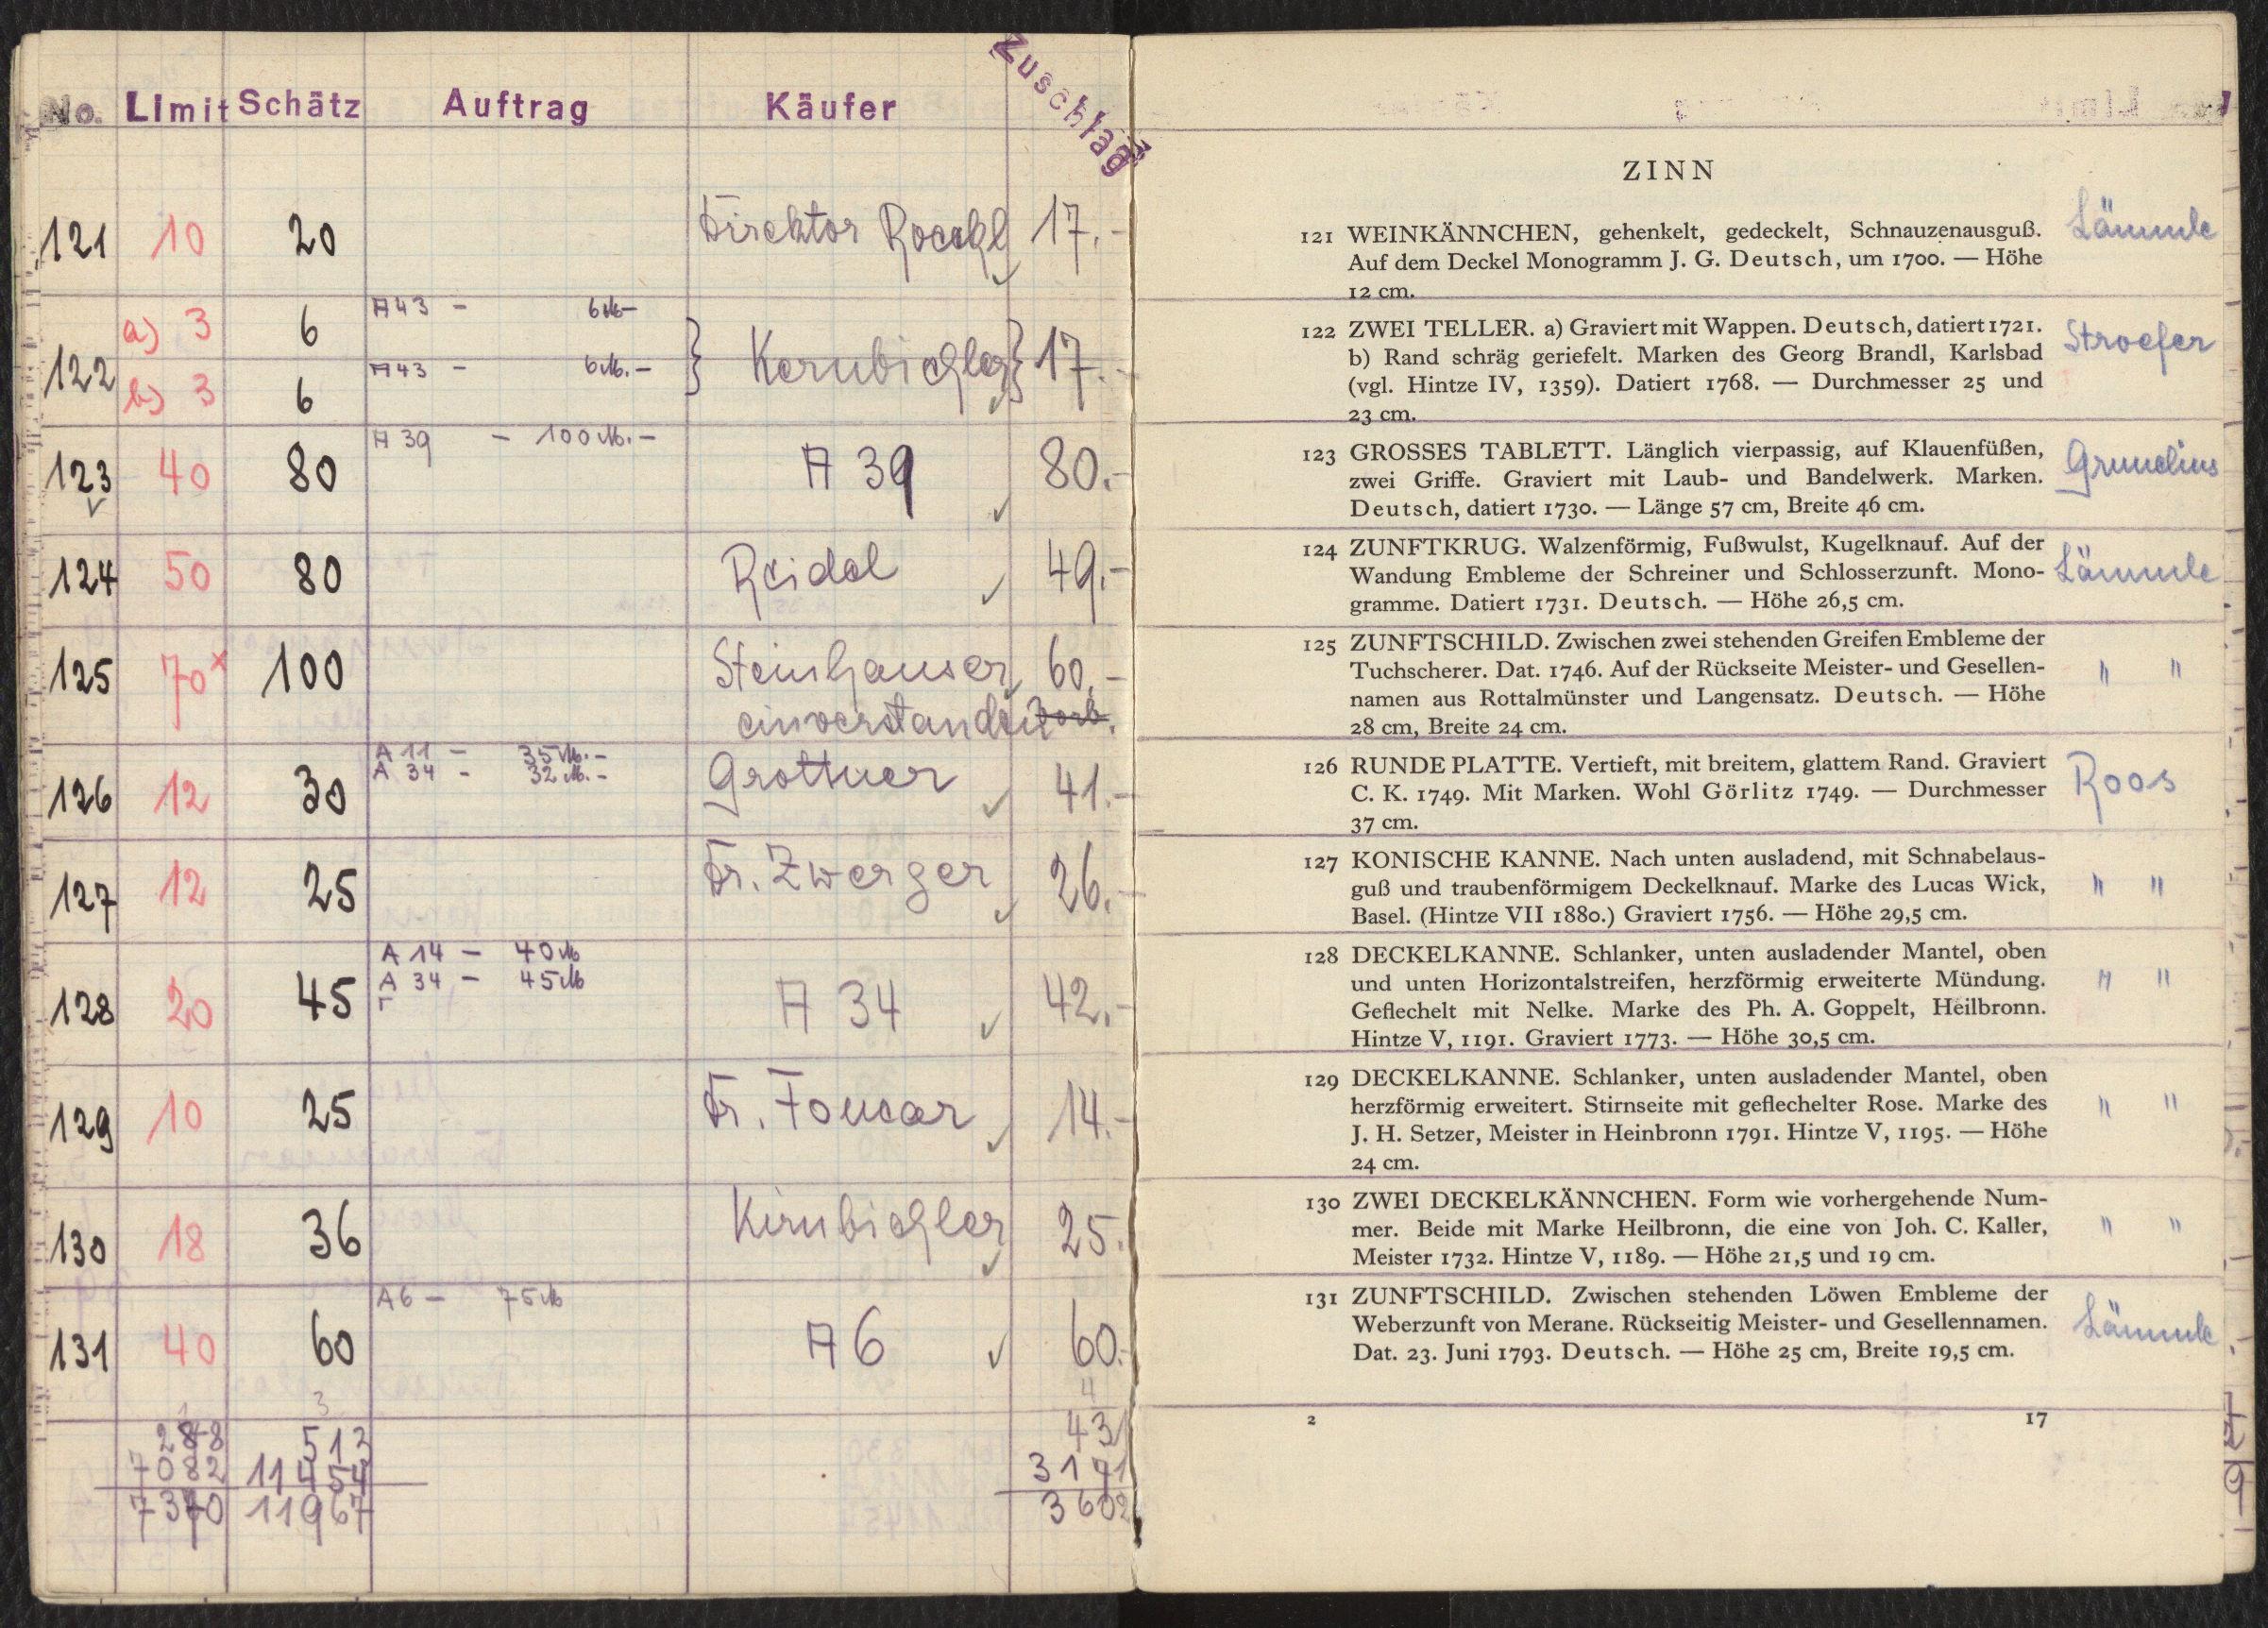 No. Limit Schätz Auftrag Käufer Zuschlag
121 10 20 Direktor 17.-
a) 3 6 A43 - 6 M.-
122 } Kernbichler } 17.-
b) 3 6 A43 - 6 M.-
123 40 80 A 39 - 100 M.- A 39 80.-
124 50 80 Reidel 49.-
125 70x 100 Steinhauser 60.-
einverstanden
126 12 30 A 11 - 35 M.- Grottner 41.-
A 34 - 32 M.-
127 12 25 Dr. Zwerger 26.-
128 20 45 A 14 - 40 M A 34 42.-
A 34 - 45 M
129 10 25 Dr. Foucar 14.-
130 18 36 Kirnbichler 25.
131 40 60 A6 - 75 M A 6 60.-
512
7082 11454
11967 3602
ZINN
121 WEINKÄNNCHEN, gehenkelt, gedeckelt, Schnauzenausguß. Lämmle
Auf dem Deckel Monogramm J. G. Deutsch, um 1700. — Höhe
12 cm.
122 ZWEI TELLER. a) Graviert mit Wappen. Deutsch, datiert 1721. Stroefer
b) Rand schräg geriefelt. Marken des Georg Brandl, Karlsbad
(vgl. Hintze IV, 1359). Datiert 1768. — Durchmesser 25 und
23 cm.
123 GROSSES TABLETT. Länglich vierpassig, auf Klauenfüßen, Grunelius
zwei Griffe. Graviert mit Laub- und Bandelwerk. Marken.
Deutsch, datiert 1730. — Länge 57 cm, Breite 46 cm.
124 ZUNFTKRUG. Walzenförmig, Fußwulst, Kugelknauf. Auf der
Wandung Embleme der Schreiner und Schlosserzunft. Mono- Lämmle
gramme. Datiert 1731. Deutsch. — Höhe 26,5 cm.
125 ZUNFTSCHILD. Zwischen zwei stehenden Greifen Embleme der
Tuchscherer. Dat. 1746. Auf der Rückseite Meister- und Gesellen- " "
namen aus Rottalmünster und Langensatz. Deutsch. — Höhe
28 cm, Breite 24 cm.
126 RUNDE PLATTE. Vertieft, mit breitem, glattem Rand. Graviert Roos
C. K. 1749. Mit Marken. Wohl Görlitz 1749. — Durchmesser
37 cm.
127 KONISCHE KANNE. Nach unten ausladend, mit Schnabelaus-
guß und traubenförmigem Deckelknauf. Marke des Lucas Wick, " "
Basel. (Hintze VII 1880.) Graviert 1756. — Höhe 29,5 cm.
128 DECKELKANNE. Schlanker, unten ausladender Mantel, oben
und unten Horizontalstreifen, herzförmig erweiterte Mündung. " "
Geflechelt mit Nelke. Marke des Ph. A. Goppelt, Heilbronn.
Hintze V, 1191. Graviert 1773. — Höhe 30,5 cm.
129 DECKELKANNE. Schlanker, unten ausladender Mantel, oben
herzförmig erweitert. Stirnseite mit geflechelter Rose. Marke des " "
J. H. Setzer, Meister in Heinbronn 1791. Hintze V, 1195. — Höhe
24 cm.
130 ZWEI DECKELKÄNNCHEN. Form wie vorhergehende Num-
mer. Beide mit Marke Heilbronn, die eine von Joh. C. Kaller, " "
Meister 1732. Hintze V, 1189. — Höhe 21,5 und 19 cm.
131 ZUNFTSCHILD. Zwischen stehenden Löwen Embleme der
Weberzunft von Merane. Rückseitig Meister- und Gesellennamen. Lämmle
Dat. 23. Juni 1793. Deutsch. — Höhe 25 cm, Breite 19,5 cm.
2 17